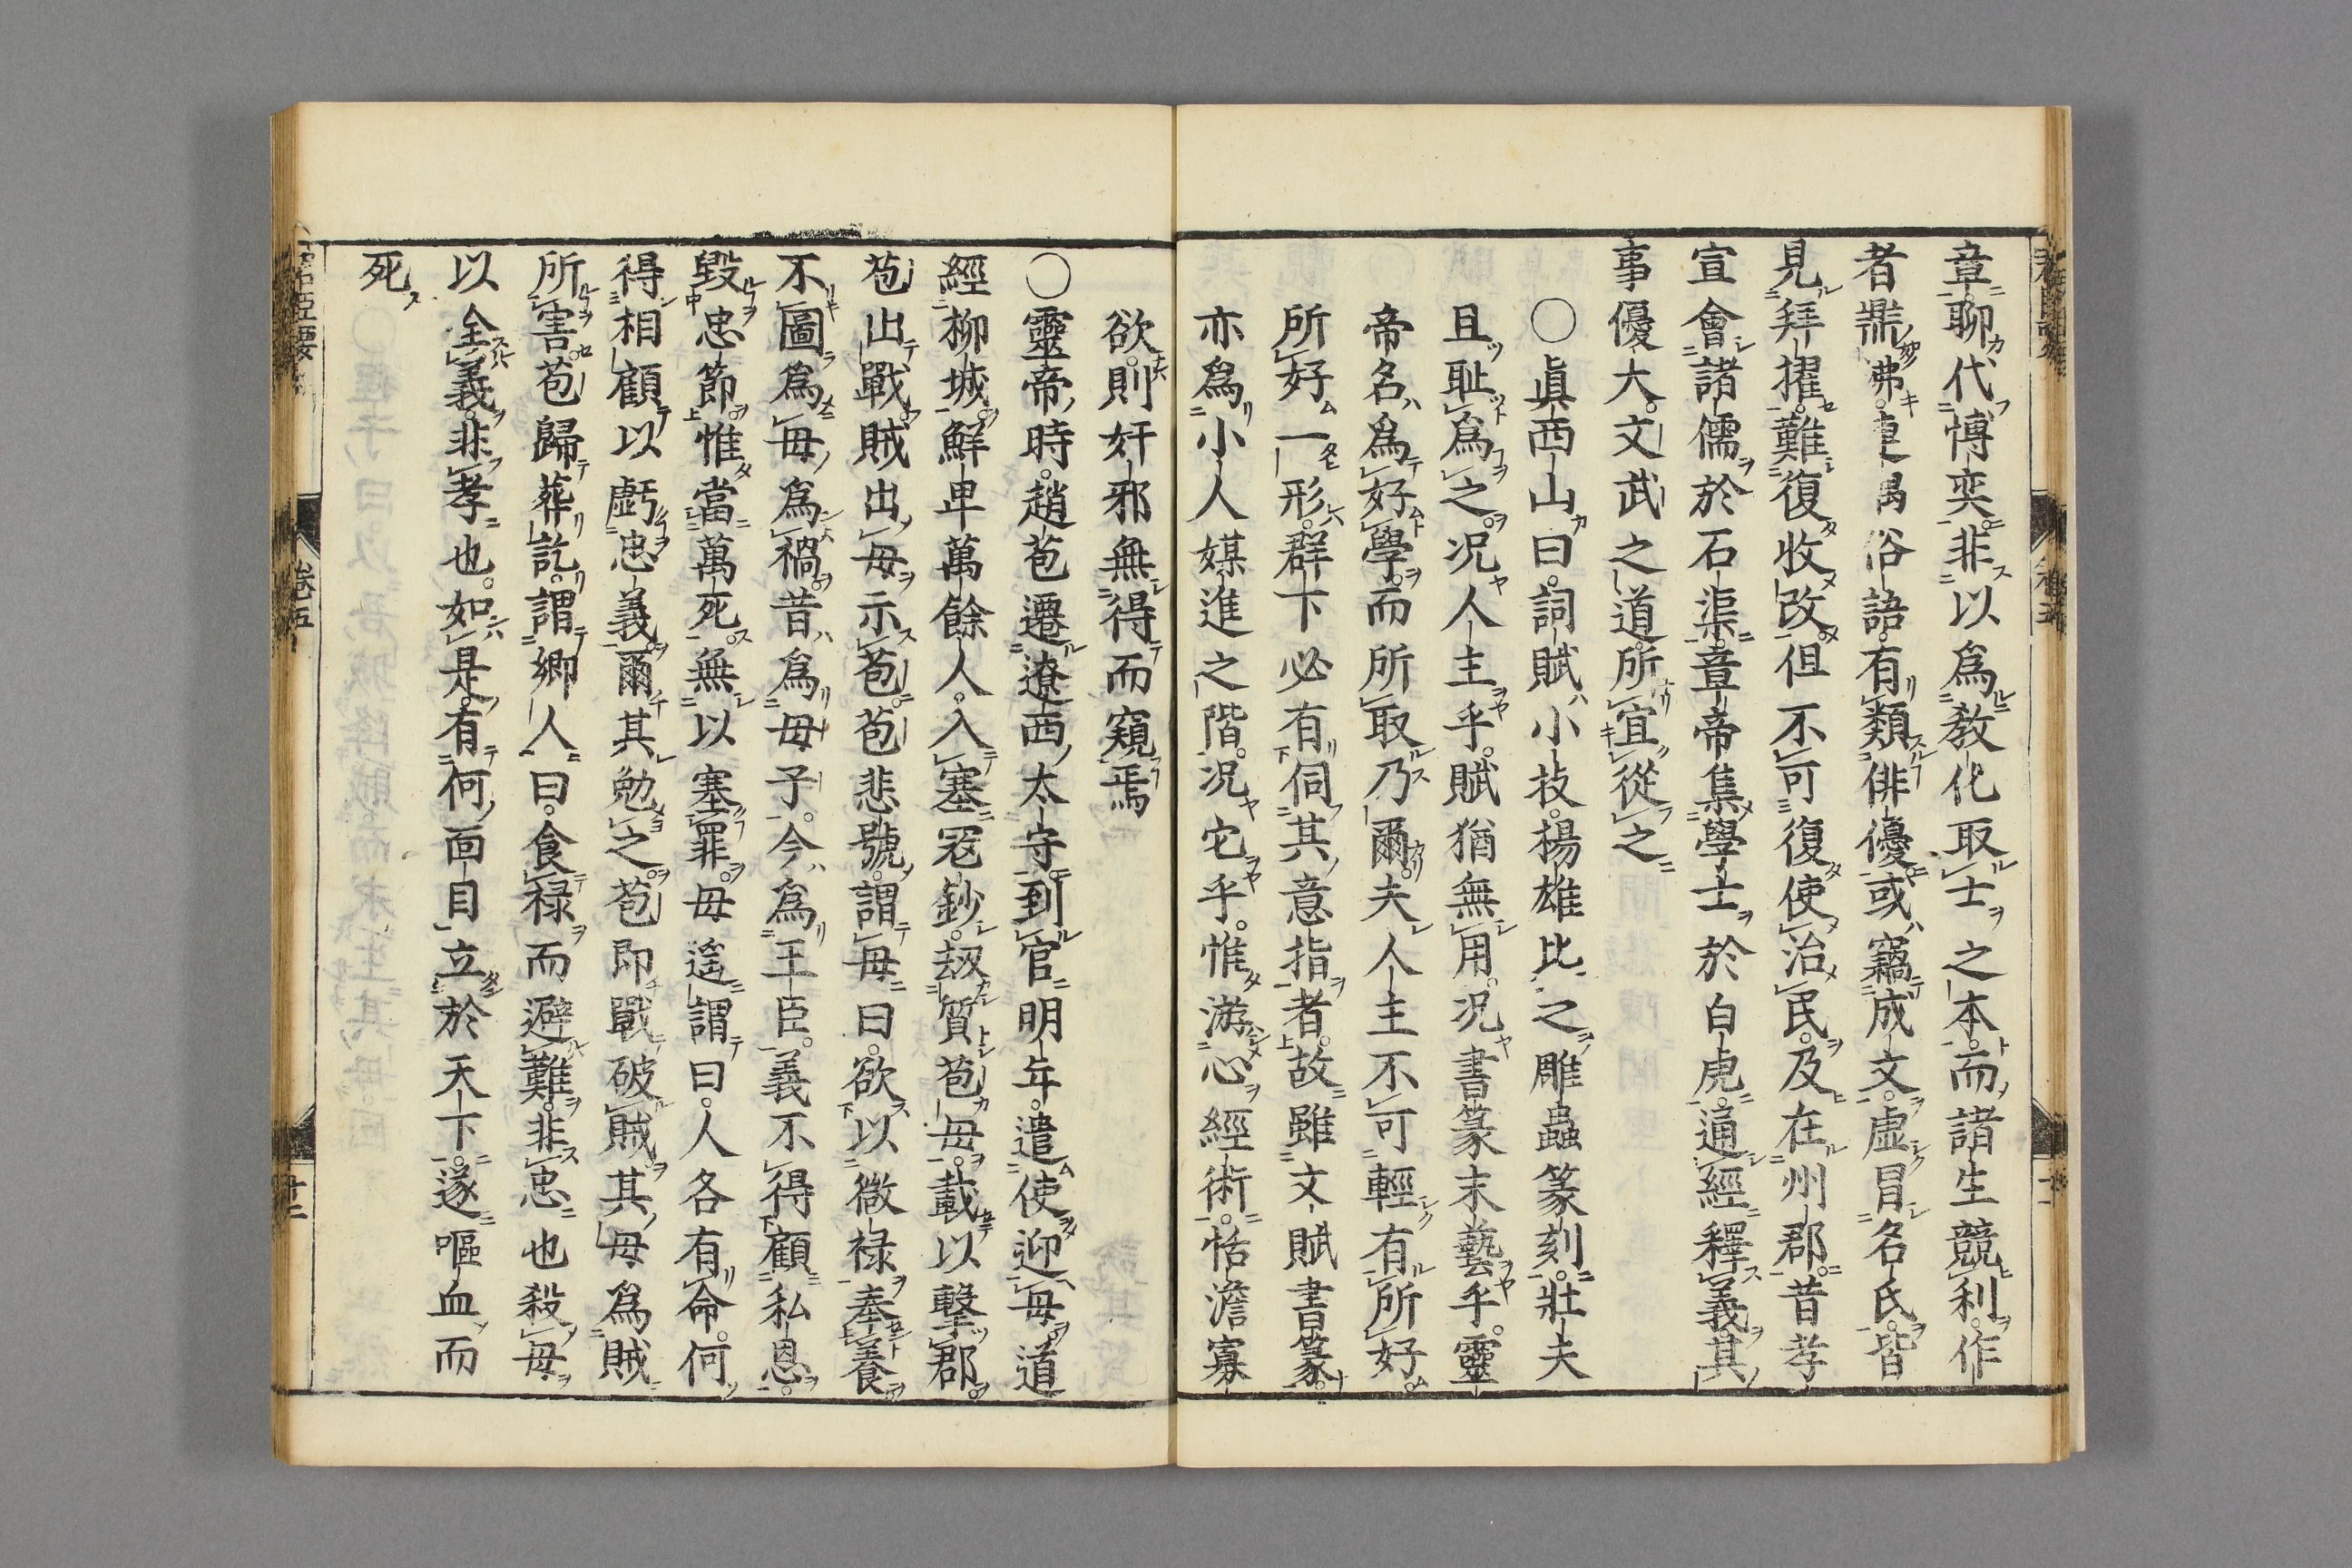 章聊代博奕非以爲教化取士之本而諸生競利作
者鼎沸連偶俗語有類俳優或竊成文虛冒名氏皆
見拜擢難復收改但不可復使治民及在州郡昔孝
宣會諸儒於石渠章帝集學士於白虎通經釋義其
事優大文武之道所宜從之
○眞西山曰詞賦小技楊雄比之雕蟲篆刻壯夫
且恥爲之況人主乎賦猶無用況書篆末藝乎靈
帝名爲好學而所取乃爾夫人主不可輕有所好
所好一形群下必有伺其意指者故雖文賦書篆
亦爲小人媒進之階況它乎惟游心經術恬澹寡
欲則奸邪無得而窺焉
○靈帝時趙苞遷遼西太守到官明年遣使迎母道
經柳城鮮卑萬餘人入塞寇鈔劫質苞母載以擊郡
苞出戰賊出母示苞苞悲號謂母曰欲以微禄奉養
不圖爲母爲禍昔爲母子今爲王臣義不得顧私恩
毀忠節惟當萬死無以塞罪母遙謂曰人各有命何
得相顧以虧忠義爾其勉之苞即戰破賊其母爲賊
所害苞歸葬訖謂鄉人曰食禄而避難非忠也殺母
以全義非孝也如是有何面目立於天下遂嘔血而
死
卷五
十二